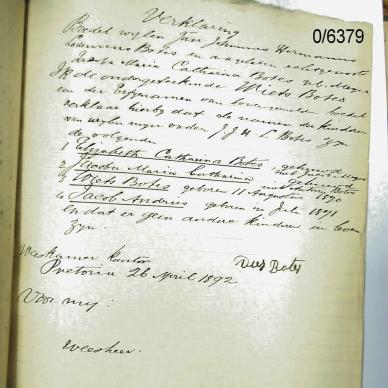 0/6379
Verklaring
Boedel wylen Jan Johannes Hermanus
Lodewicus Botes en nagelaten echtgenoote
Jacoba Maria Catharina Botes geb. Meyer
Ik de ondergeteekende Wiets Botes
een der Erfgenamen van bovengemelde boedel
verklaar hierby dat de namen der kinderen
van wylen myn vader J. J. H. L Botes zyn
de volgende
1 Elizabeth Catharina Botes gehuwd
2 Jacoba Maria Catharina
3 Wiets Botes geboren 11 Augustus 1890
4 Jacob Andries geboren in Juli 1891
en dat er geen andere kinderen in leven
zyn.
Weeskamer Kantoor
Pretoria 26 April 1892
Botes
Voor my:
Weesheer.